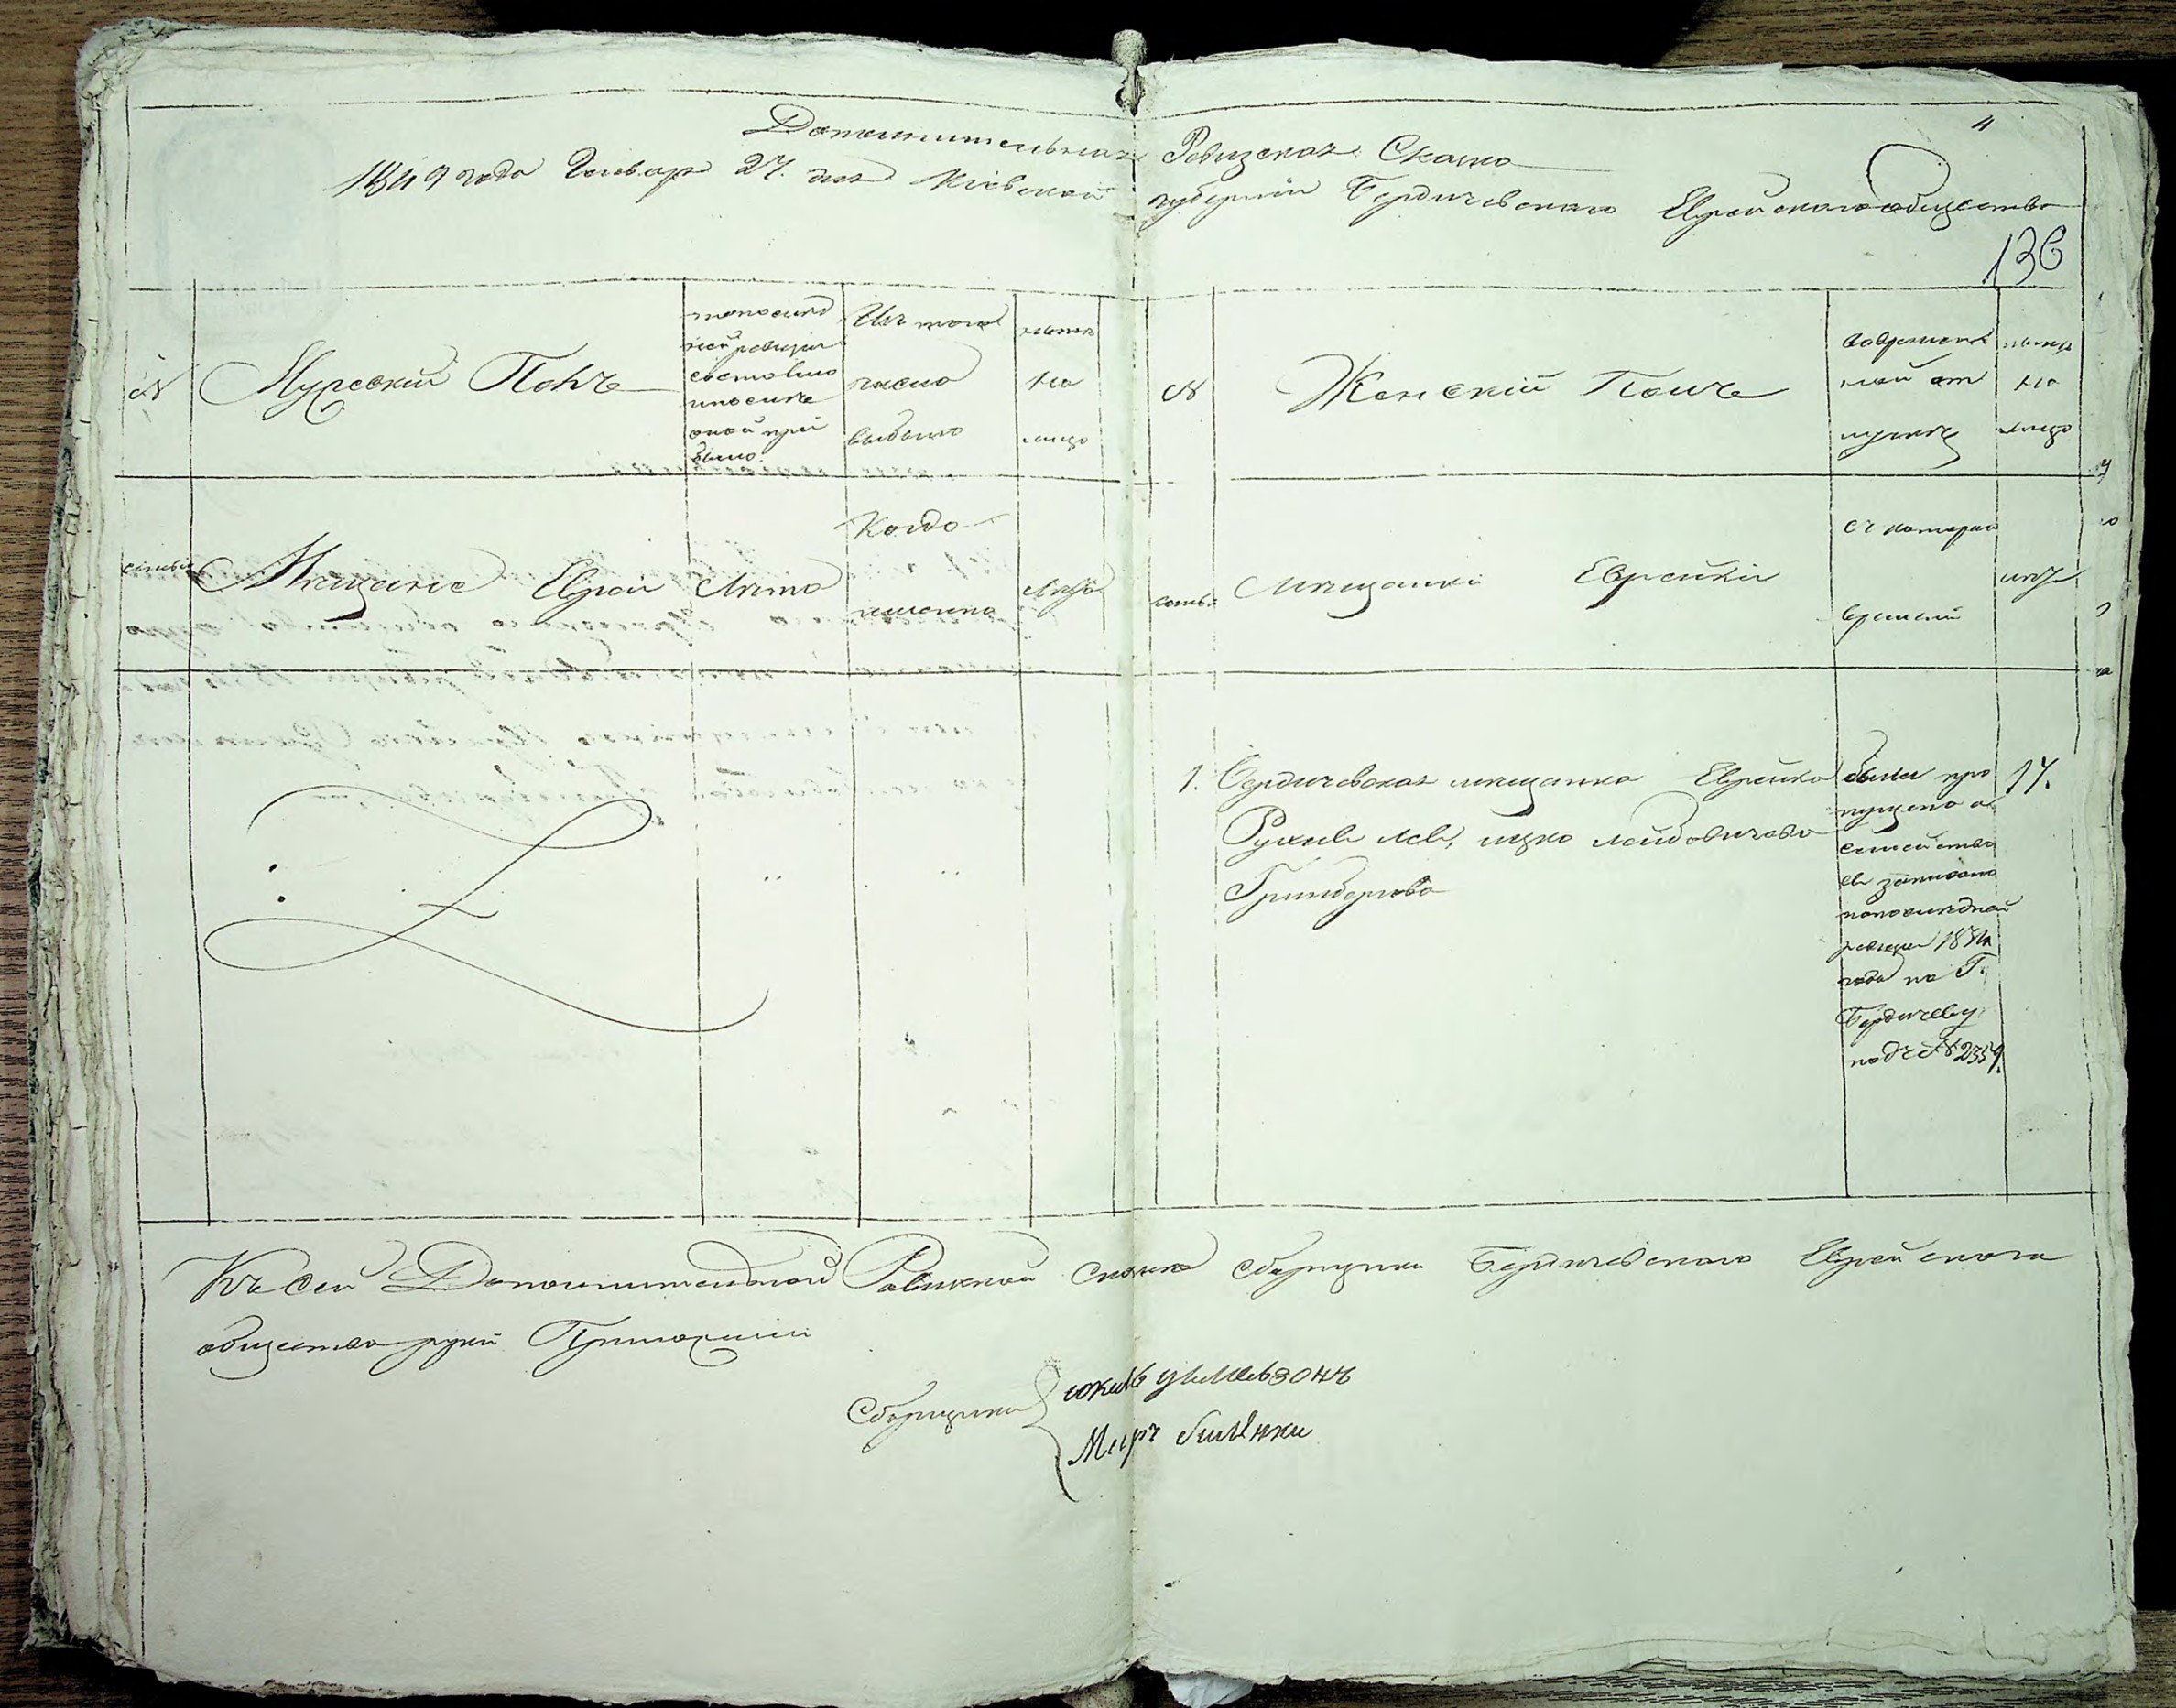 4
Дополнительная Ревизская Скаска
1849 года Генваря 27. дня Кіевской губерніи Бердичевскаго Еврейскаго общества
136
№
Мужескій Полъ
по послѣд
ней ревизіи
состояло
и после
оной при
было.
Изъ того
числа
выбыло
нынѣ
на
лицо
№
Женскій Полъ
во временной
отлучкѣ
нынѣ
на
лицо
семьи
Мѣщане Евреи
Лѣта
Когда
именно
Лѣта
семьи
Мѣщанки Еврейки
съ котораго
времени
лѣта
1. Бердичевская мѣщанка Еврейка
Рухля Лея, Ицко Лейбовичева
Гринбергова
была про
пущена а
семейство
ея записано
по последней
ревизіи 1834
года по Г.
Бердичеву
подъ № 2359.
17.
Къ сей Дополнительной Ревизкой скаски сборщики Бердичевскаго Еврейскаго
общества руки Приложили
Сборщики
Миръ